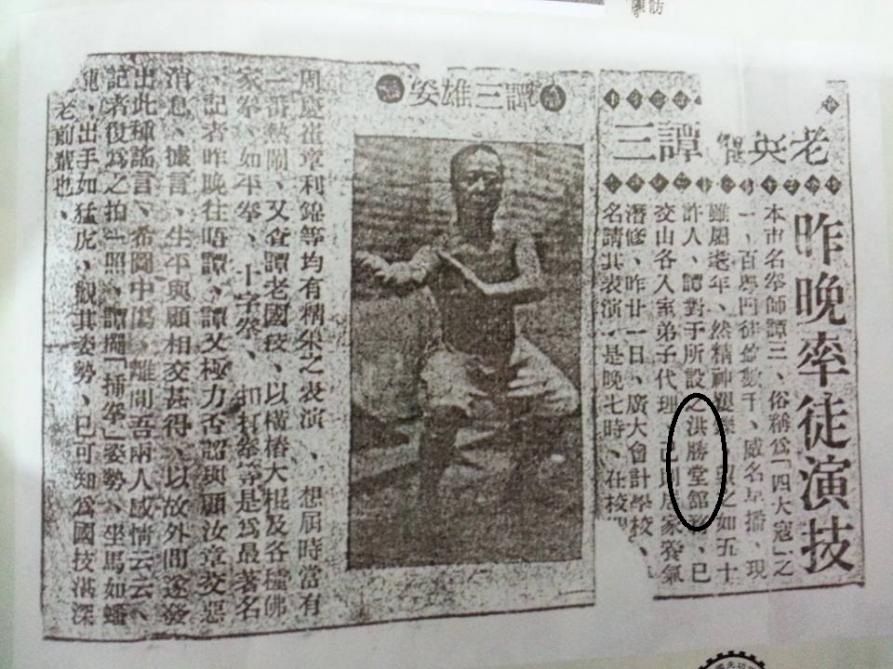 訪
老英雄譚三
昨晚率徒演技
本市名拳師譚三、俗稱為「四大寇」之
一、百粵門徒逾數千、威名早播、現
雖屬老年、然精神矍鑠、望之如五十
許人、譚對于所設之洪勝堂館務、已
交由各入室弟子代理、己則居家養氣
潛修、昨廿一日、廣大會計學校、
名請其表演、是晚七時、在校
譚三雄姿
周慶崔章利錦等均有精采之表演、想屆時當有
一番熱鬧、又查譚老國技、以橫樁大棍及各種佛
家拳、如平拳、十字拳、扣打拳等是為最著名
、記者昨晚往晤譚、譚又極力否認與顧汝章交惡
消息、據言、生平與顧相交甚得、以故外間遂發
出此種謠言、希圖中傷、離間吾兩人感情云云、
記者復為之拍一照、譚「插拳」姿勢、坐馬如蟠
龍、出手如猛虎、觀其姿勢、已可知為國技湛深
老前輩也、